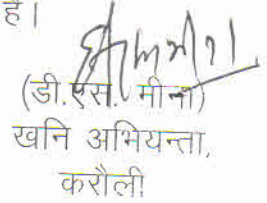 है।
(डी.एस. मीना)
खनि अभियन्ता,
करौली